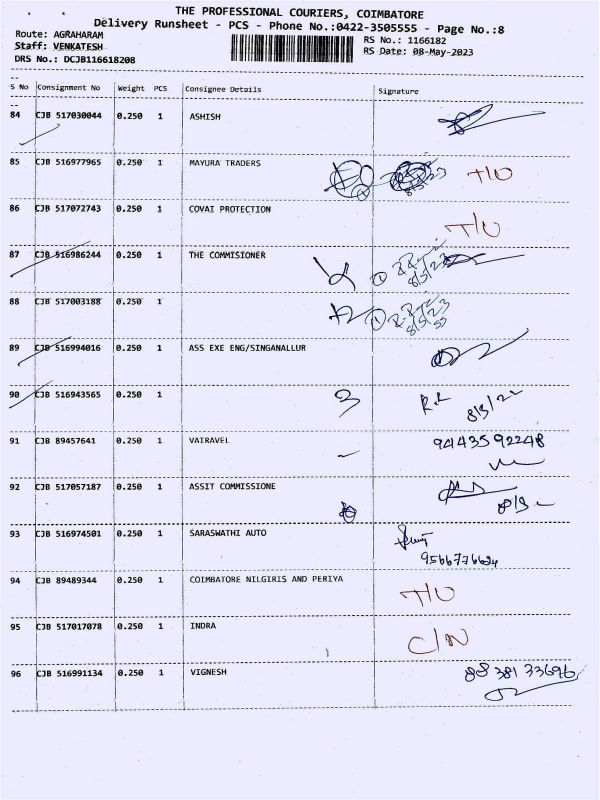 THE PROFESSIONAL COURIERS, COIMBATORE
Delivery Runsheet - PCS - Phone No.:0422-3505555 - Page No.:8
Route: AGRAHARAM
Staff: VENKATESH
DRS No.: DCJB116618208
RS No.: 1166182
RS Date: 08-May-2023
S No Consignment No Weight PCS Consignee Details Signature
84 CJB 517030044 0.250 1 ASHISH
85 CJB 516977965 0.250 1 MAYURA TRADERS T/O
86 CJB 517072743 0.250 1 COVAI PROTECTION T/O
87 CJB 516986244 0.250 1 THE COMMISIONER 1 8/5/23
88 CJB 517003188 0.250 1 1 8/5/23
89 CJB 516994016 0.250 1 ASS EXE ENG/SINGANALLUR
90 CJB 516943565 0.250 1 3
91 CJB 89457641 0.250 1 VAIRAVEL 9443592248
92 CJB 517057187 0.250 1 ASSIT COMMISSIONE
93 CJB 516974501 0.250 1 SARASWATHI AUTO
94 CJB 89489344 0.250 1 COIMBATORE NILGIRIS AND PERIYA T/O
95 CJB 517017078 0.250 1 INDRA C/N
96 CJB 516991134 0.250 1 VIGNESH 8838133696